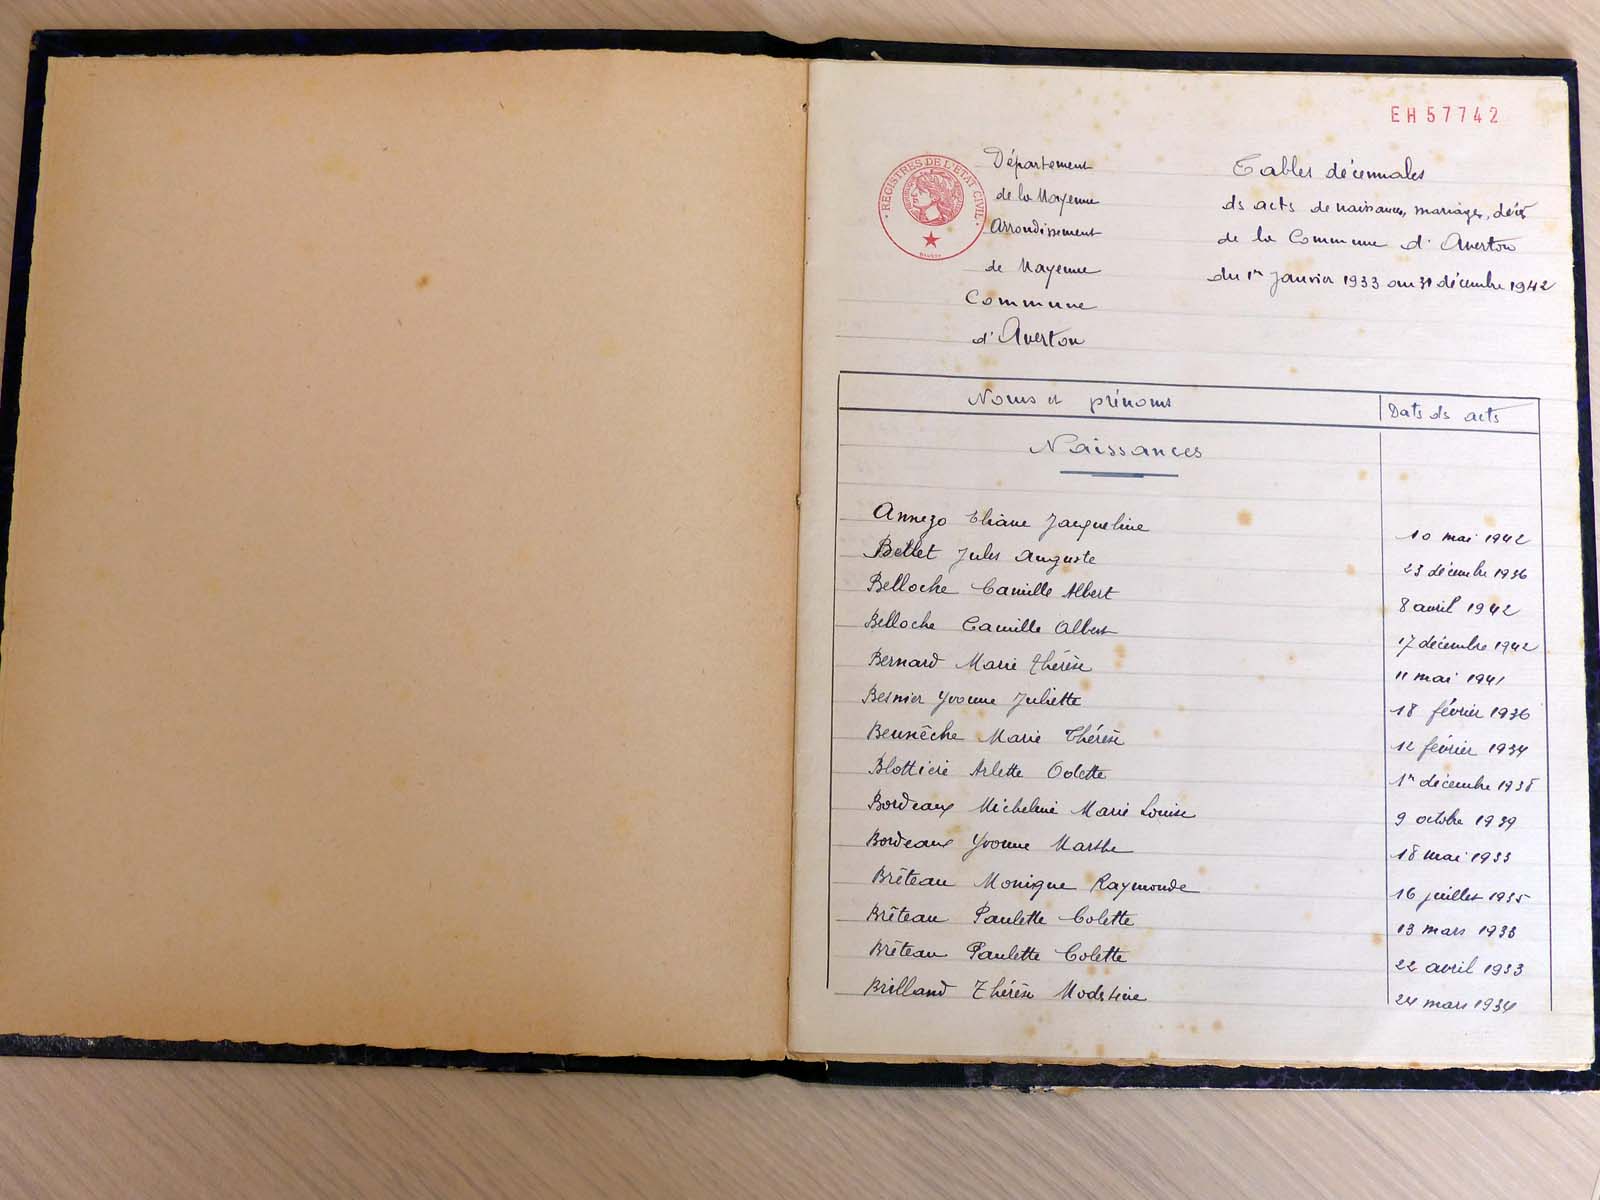 EH57742
REGISTRES DE L'ETAT CIVIL
Département
de la Mayenne
Arrondissement
de Mayenne
Commune
d'Averton
Tables décennales
ds acts de naissances, mariages, décès
de la Commune d'Averton
du 1er Janvier 1933 au 31 décembre 1942
Noms et prénoms Dats ds acts
Naissances
Annezo Eliane Jacqueline 10 mai 1942
Bellet Jules Auguste 23 décembre 1936
Belloche Camille Albert 8 avril 1942
Belloche Camille Albert 17 décembre 1942
Bernard Marie Thérèse 11 mai 1941
Besnier Yvonne Juliette 18 février 1936
Beunêche Marie Thérèse 12 février 1934
Blottière Arlette Odette 1er décembre 1938
Bordeaux Micheline Marie Louise 9 octobre 1939
Bordeaux Yvonne Marthe 18 mai 1933
Brêteau Monique Raymonde 16 juillet 1935
Brêteau Paulette Colette 13 mars 1938
Brêteau Paulette Colette 22 avril 1933
Brilland Thérèse Modestine 24 mars 1934